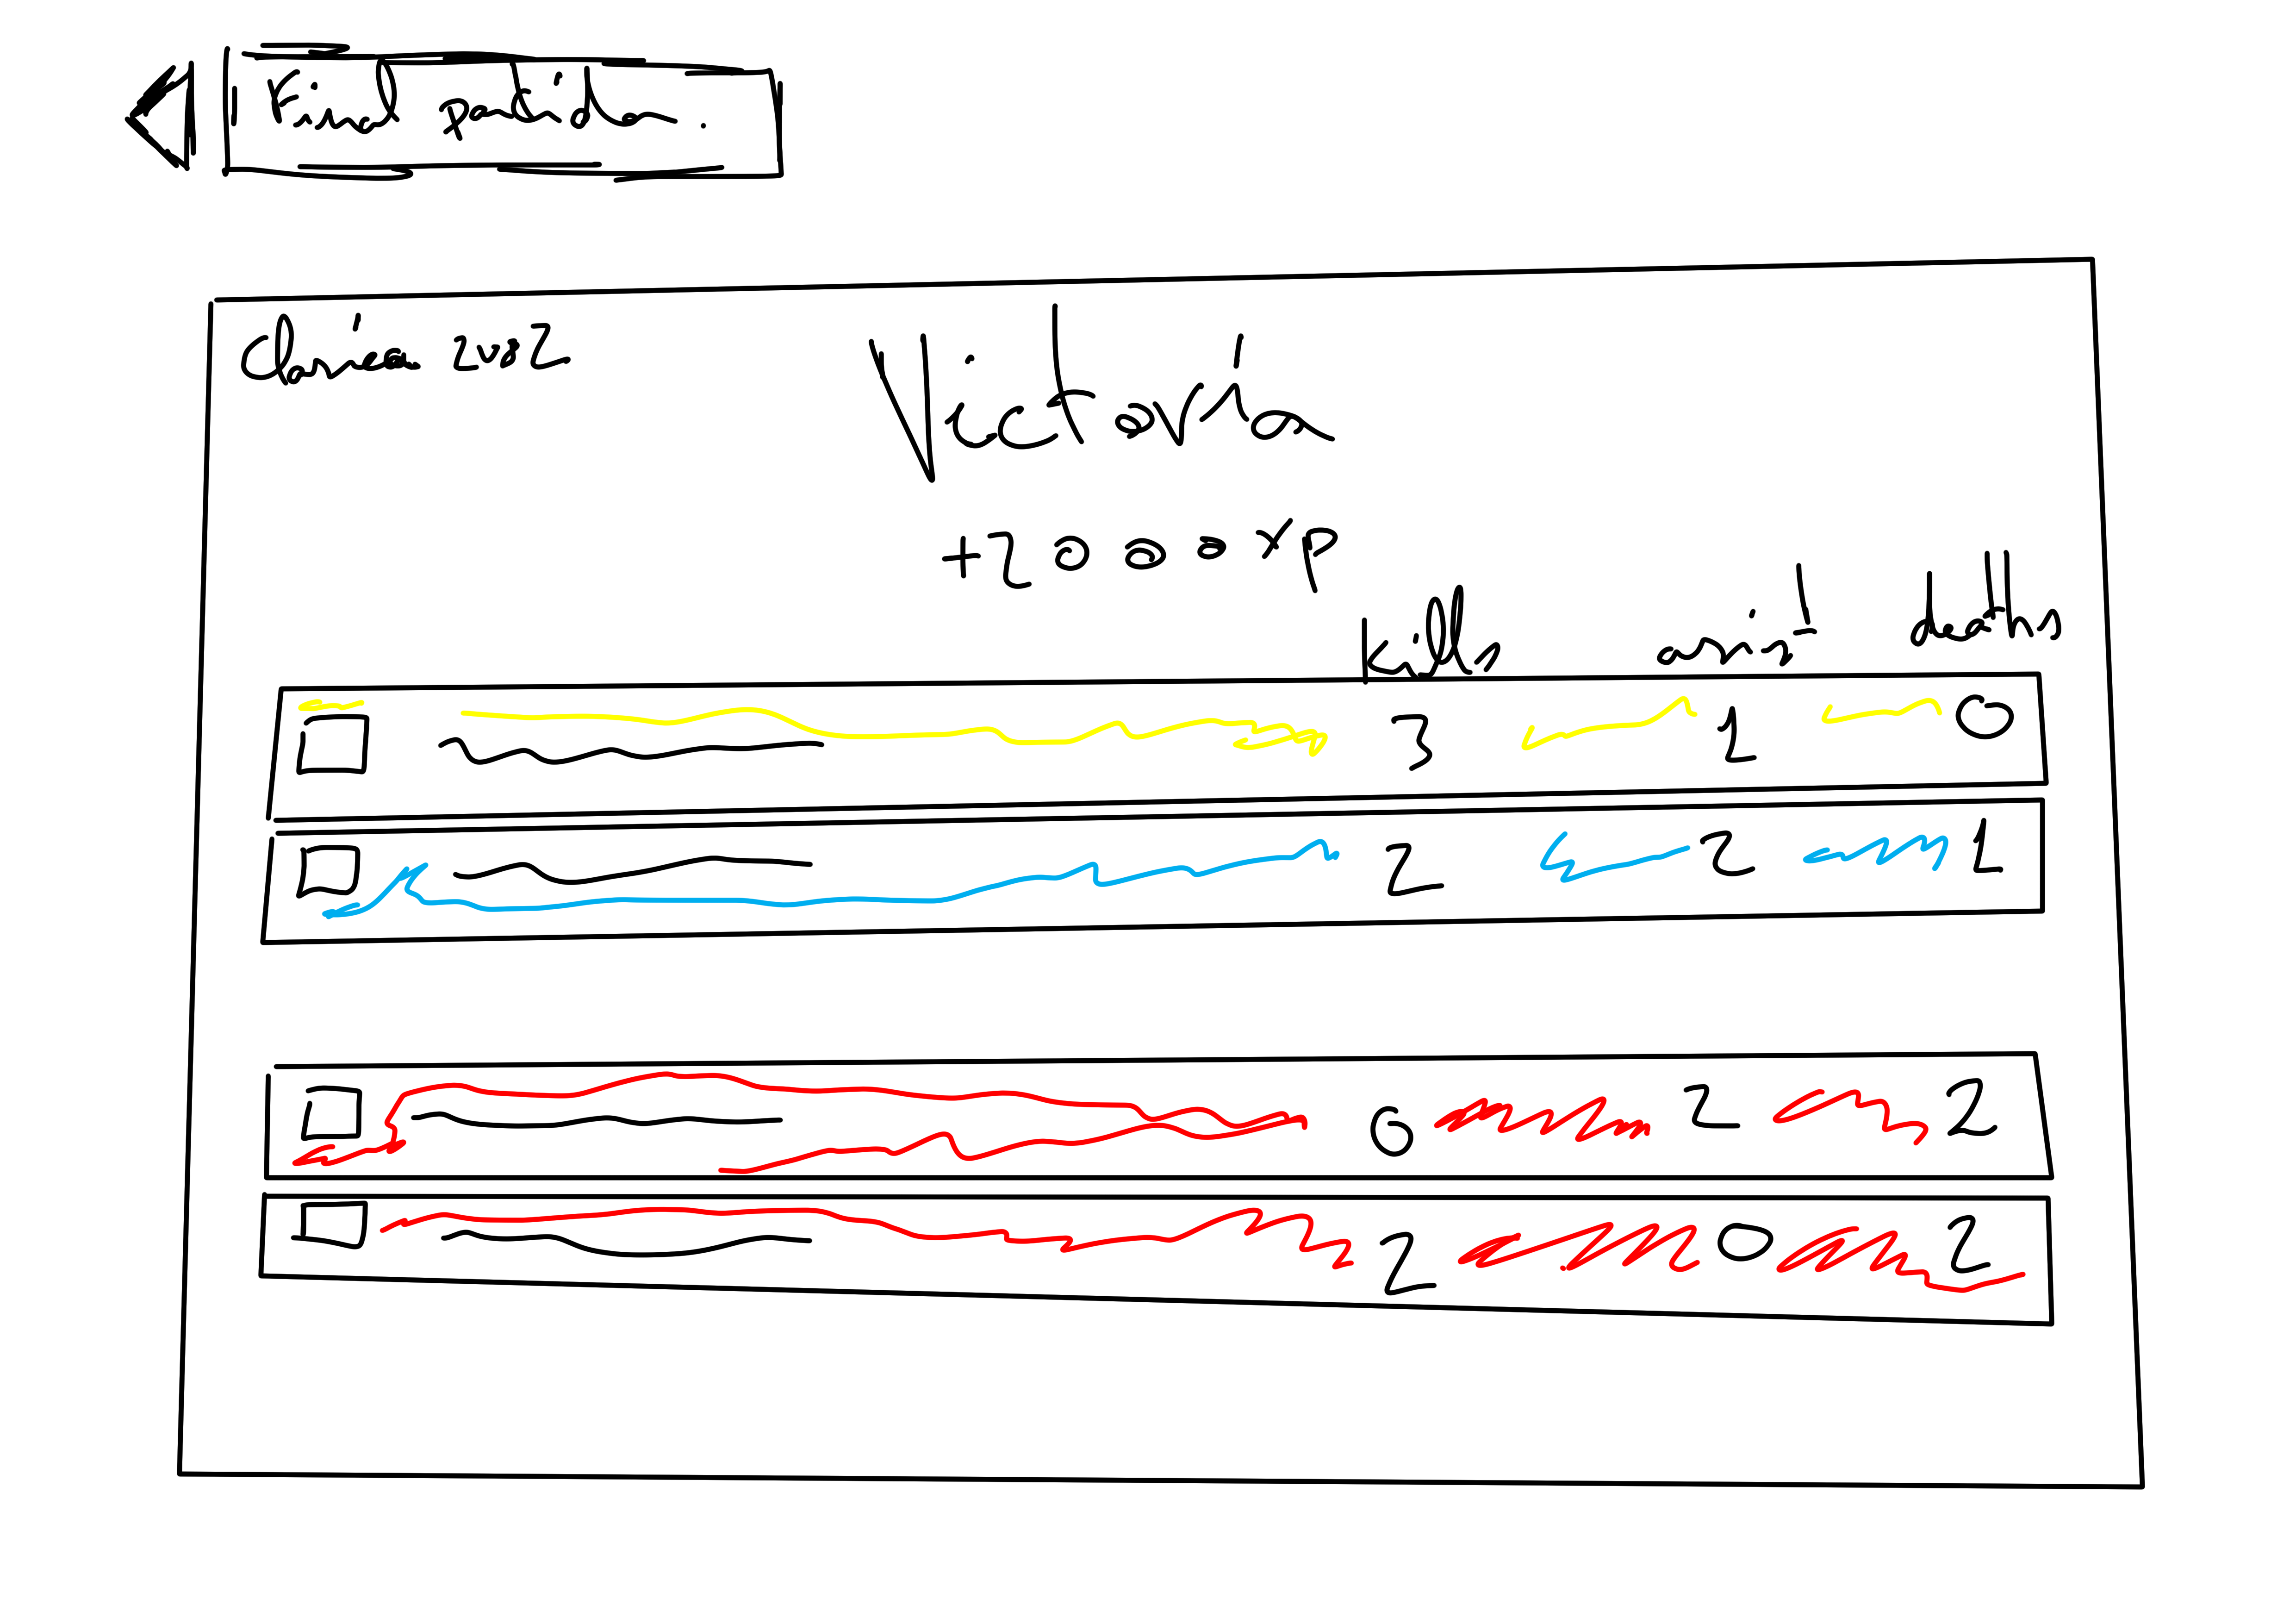 Final partida.
Clásica 2vs2
Victoria
+2000xp
kills assist deaths
3 1 0
2 2 1
0 2 2
2 0 2